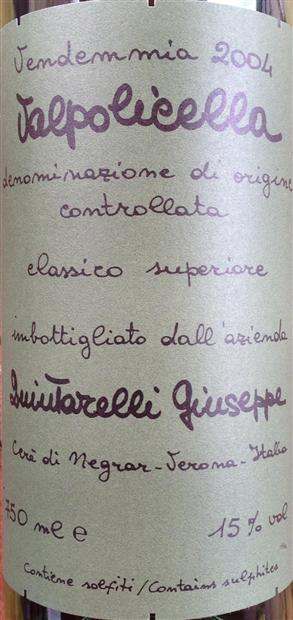 Vendemmia 2004
Valpolicella
denominazione di origine
controllata
classico superiore
imbottigliato dall'azienda
Quintarelli Giuseppe
Cerè di Negrar - Verona - Italia
750 ml e 15% vol
Contiene solfiti / Contains sulphites